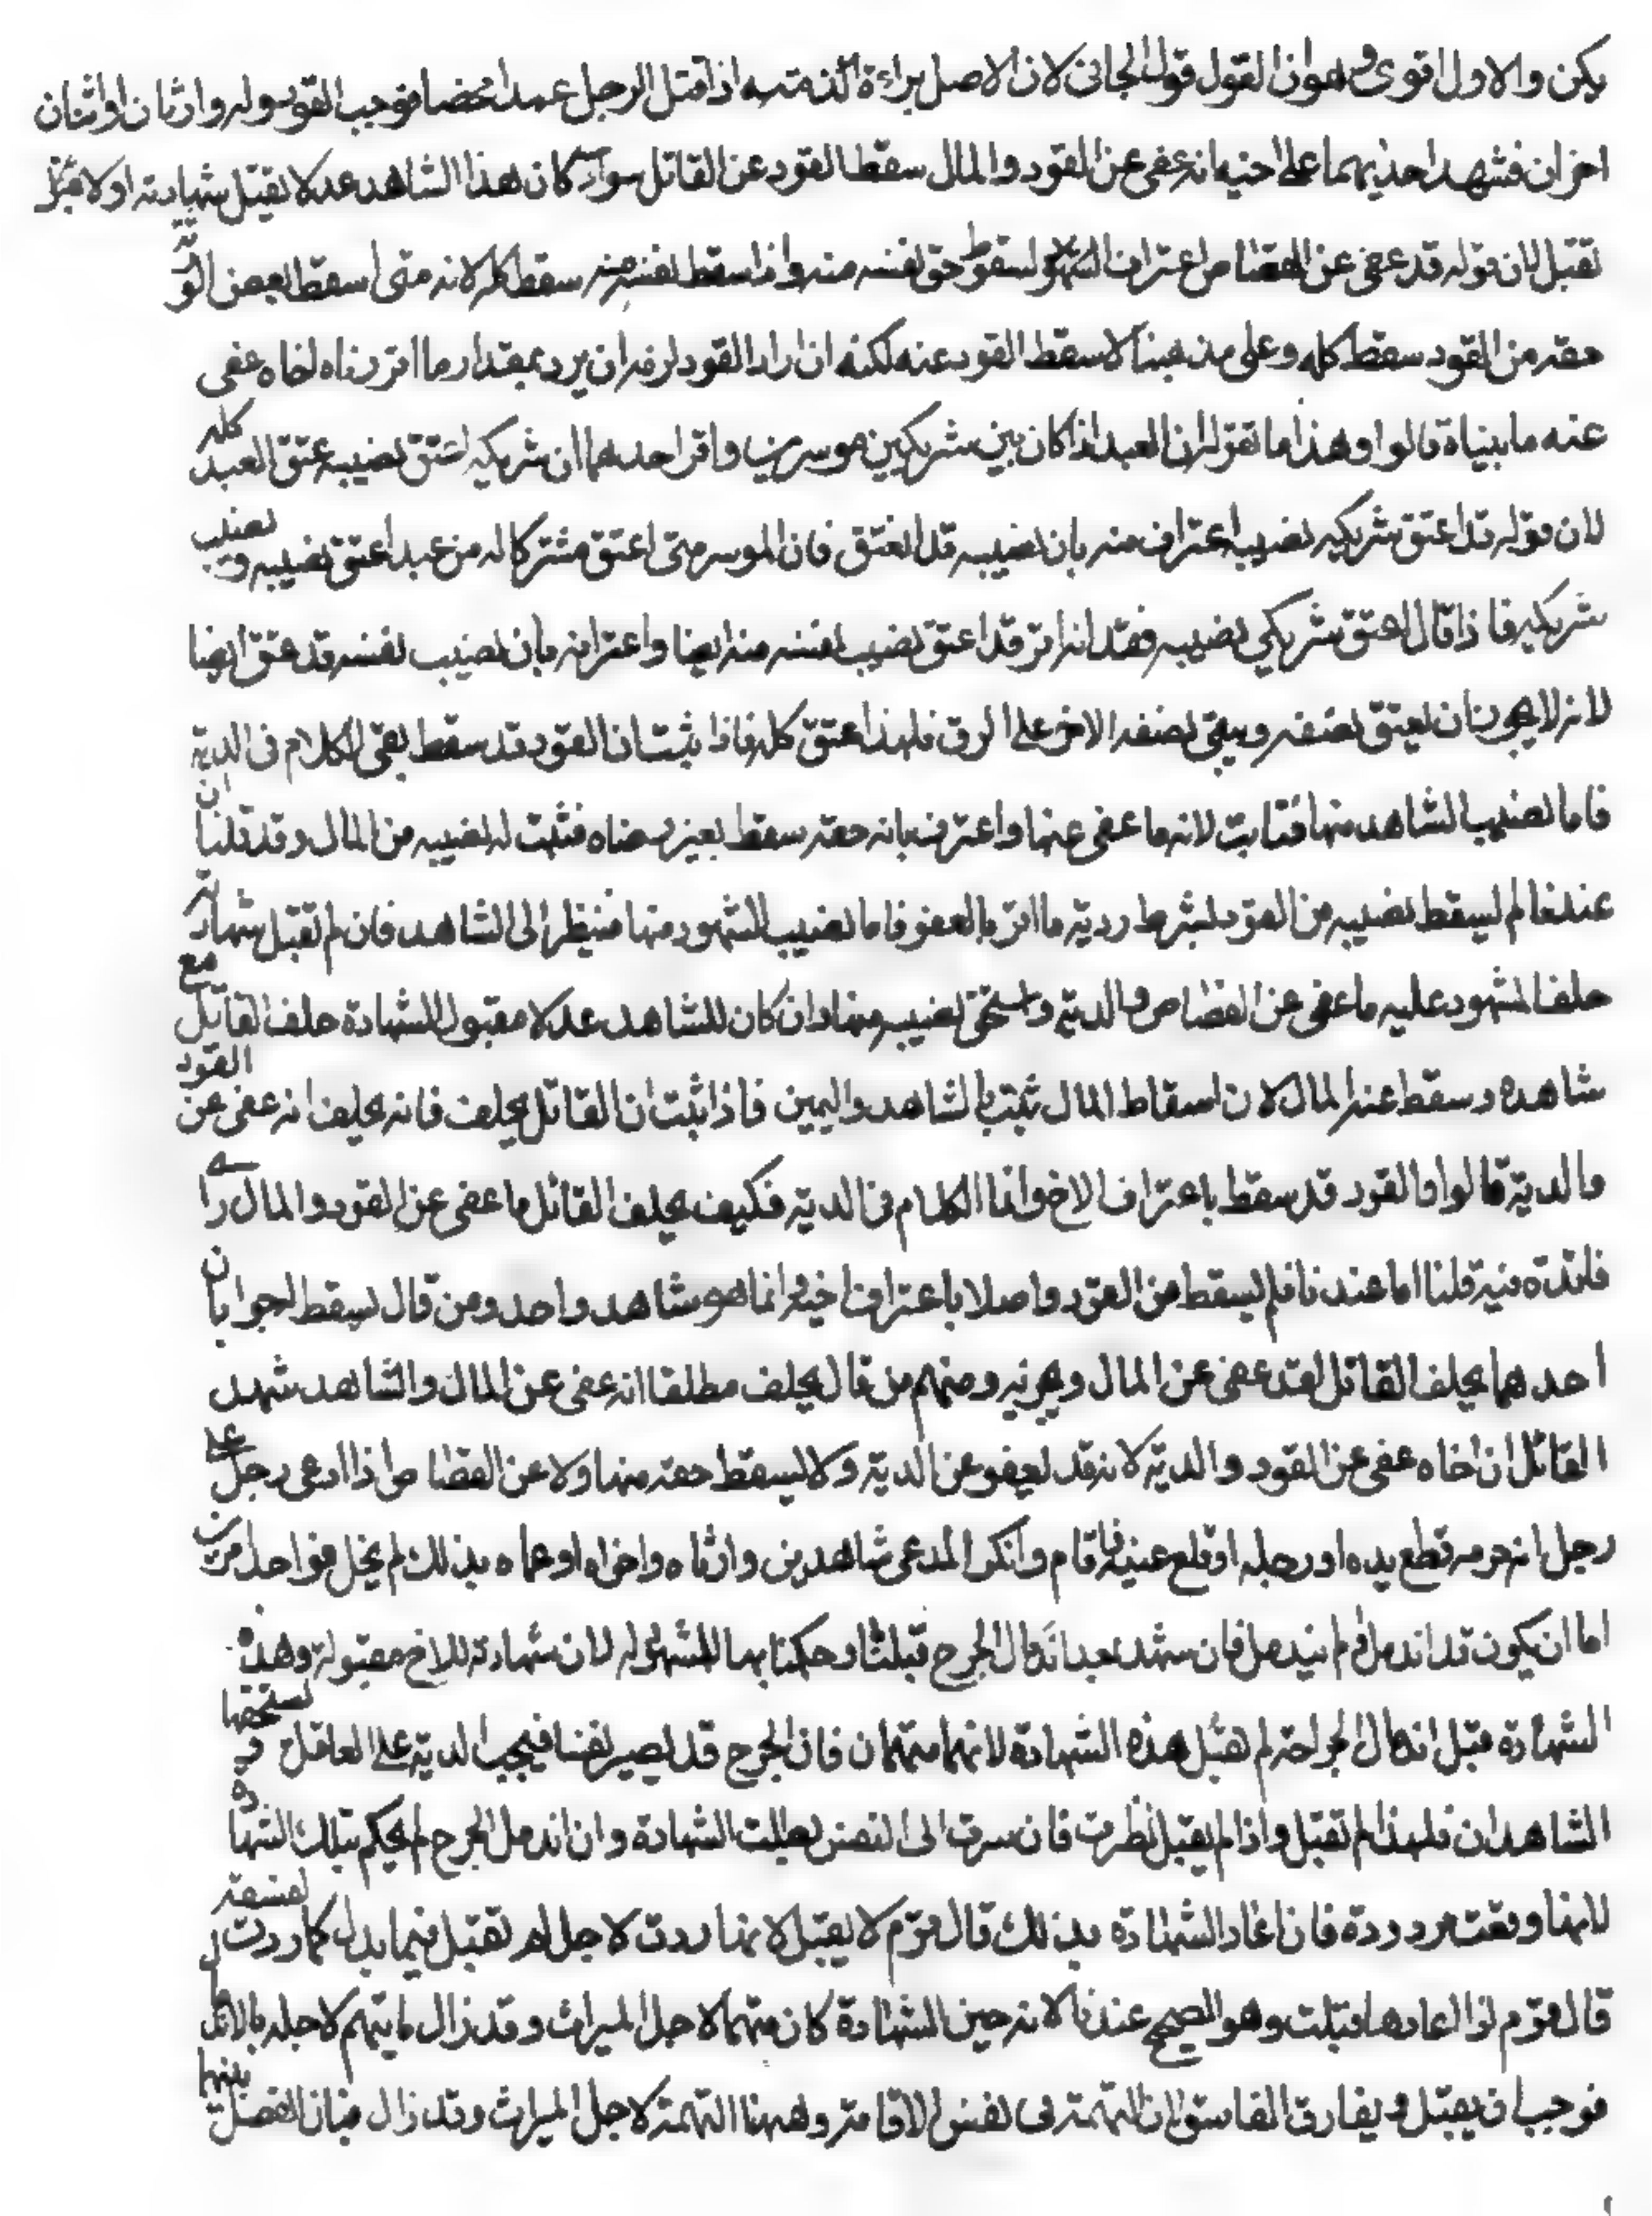 يكن والاول اقوى وهو ان القول قول الجانى لان الاصل براءة الذمته اذا قتل الرجل عمدا محضا فوجب القود وله وارثان او اثنان
اخران فشهد احديهما على اخيه انه عفى عن القود والمال سقط القود عن القاتل سواء كان هذا الشاهد عدلا تقبل شهادته او لا
تقبل لان قوله قد عفى عن القصاص اعتراف لسقوط حق نفسه منه واذا سقط نفسه منه سقط كله لانه متى اسقط بعض الورثة
حقه من القود سقط كله وعلى مذهبنا لا سقط القود عنه لكنه ان اراد القود لزمه ان يرد بمقدار ما اقر بناه اخاه عفى
عنه ما بيناه قالوا وهذا ما نقوله ان العبد اذا كان بين شريكين موسرين واقر احدهما ان شريكه اعتق نصيبه عتق العبد كله
لان قوله قد اعتق شريكه نصيبه اعتراف منه بان نصيبه قد انعتق فان الموسر متى اعتق مشتركا له من عبد اعتق نصيبه ونصيب
شريكه فاذا قال اعتق شريكي نصيبه فقد اقر انه قد اعتق نصيب نفسه منه ايضا واعترافه بان نصيب نفسه قد عتق ايضا
لانه لا يجوز ان يعتق نصفه ويبقى نصفه الاخر على الرق فلهذا عتق كله فاذا ثبت ان القود قد سقط بقى الكلام فى الدية
فاما نصيب الشاهد منها فثابت لانه ما عفى عنها واعترف بانه حقه سقط بغير رضاه فثبت له نصيبه من المال وقد قلنا ان
عندنا لم يسقط نصيبه من القود بشرط رد دية ما اقر بالعفو فاما نصيب المشهود منها فينظر الى الشاهد فان لم تقبل شهادته
حلف المشهود عليه ما عفى عن القصاص والدية واستحق نصيبه منها وان كان للشاهد عدلا مقبول الشهادة حلف القاتل مع
شاهده وسقط عنه المال لان اسقاط المال يثبت بالشاهد واليمين فاذا ثبت ان القاتل يحلف فانه يحلف انه عفى عن القود
والدية قالوا والقود قد سقط باعتراف الاخ وانما الكلام فى الدية فكيف يحلف القاتل ما عفى عن القود والمال
فائدة فيه قلنا اما عندنا فلم يسقط من القود اصلا باعتراف اخيه انما هو شاهد واحد ومن قال يسقط اجوابان
احدهما يحلف القاتل لقد عفى عن المال ويجزيه ومنهم من قال يحلف مطلقا انه عفى عن المال والشاهد شهد
القاتل ان اخاه عفى عن القود والدية لانه قد يعفو عن الدية ولا يسقط حقه منها ولا عن القصاص اذا ادعى رجل على
رجل انه جرحه قطع يده او رجله او قلع عينه فاقام وانكر المدعى شاهدين وارثاه واخواه او عماه بذلك لم يخل من احد امرين
اما ان يكون قد اندمل او لم يندمل فان شهد بعد اندمال الجرح قبلتا وحكمنا بها للمشهود له لان شهادة للاخ مقبولة وهذه
الشهادة قبل اندمال الجراحة لم تقبل هذه الشهادة لانهما متهمان فان الجرح قد يصير نفسا فيجب الدية على العاقل ويستحقها
الشاهدان فلهذا لم تقبل واذا لم يقبل نظرت فان سرت الى النفس بطلت الشهادة وان اندمل الجرح لم يحكم بتلك الشهادة
لانها وقعت مردودة فان اعاد الشهادة بذلك قال قوم لا يقبل لانها ردت لاجل امر تقبل فيما بدل كما ردت
قال قوم اذا اعادها قبلت وهو الصحيح عندنا لانه حين الشهادة كان متهما لاجل الميراث وقد زال ما يتهم لاجله بالاندمال
فوجب ان يقبل ويفارق الفاسق لان التهمة فى نفس الاقامة وههنا التهمة لاجل الميراث وقد زال فبان الفصل بينهما